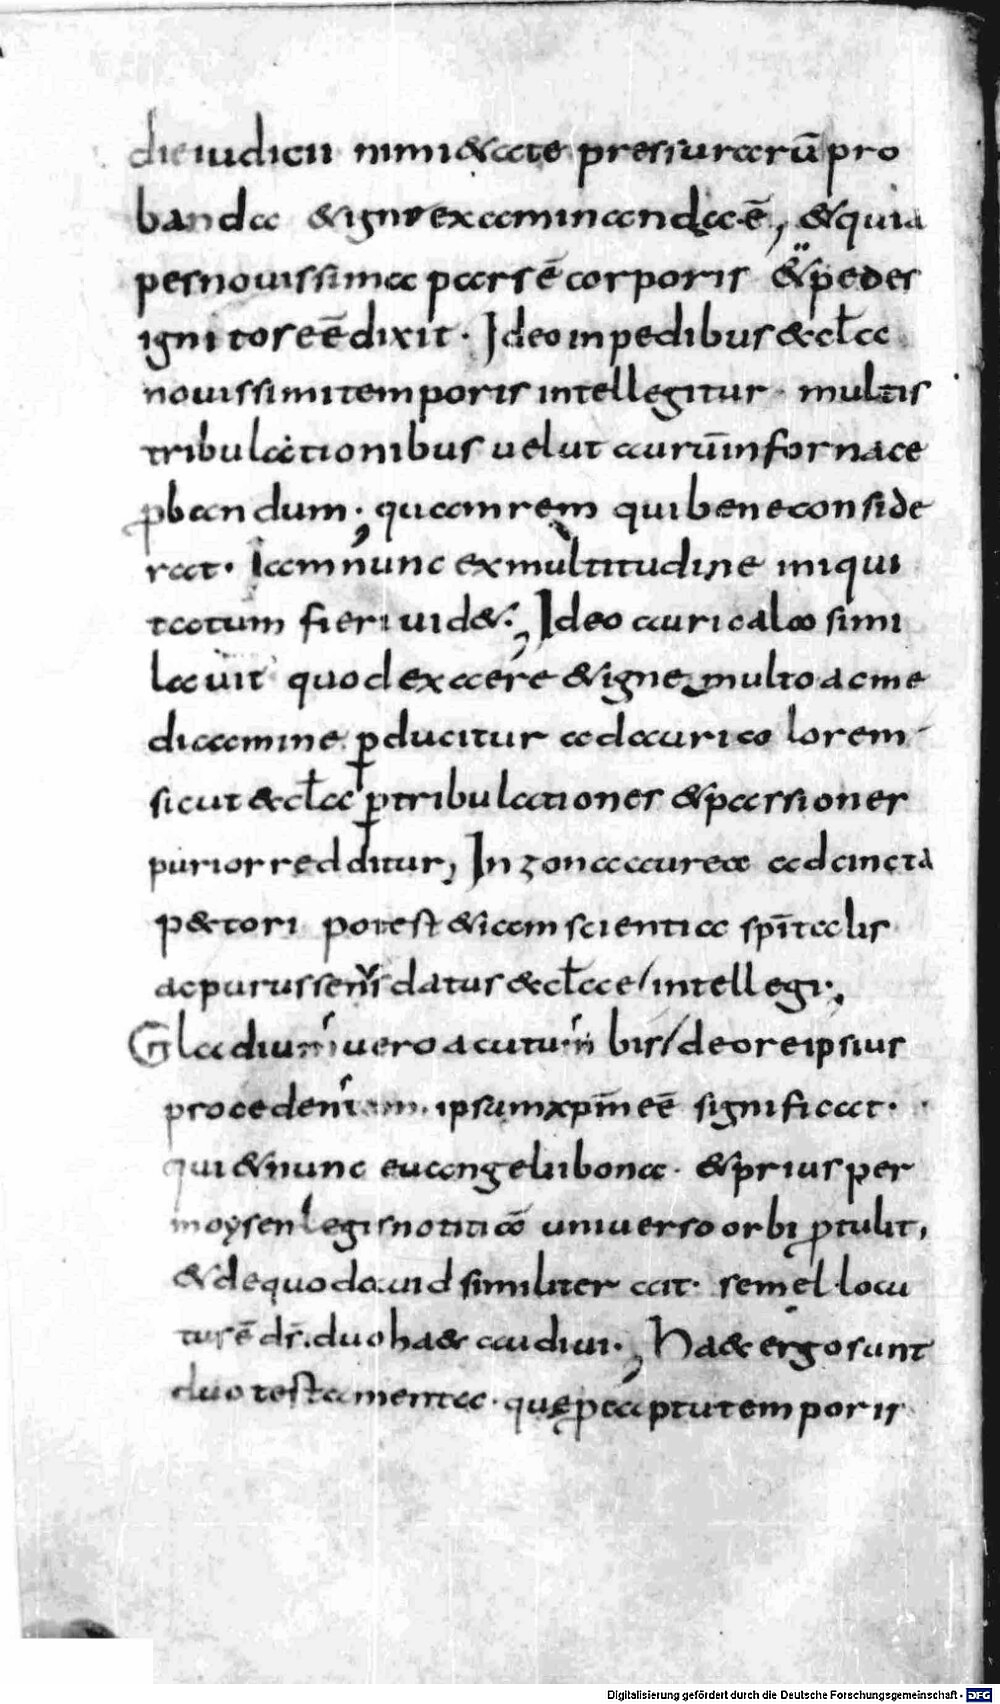 die iudicii nimi&ate pressurarū pro
banda & igni examinanda ē, & quia
pes nouissima pars ē corporis & pedes
ignitos eē dixit. Ideo in pedibus & cła
nouissimi temporis intellegitur. multis
tribulationibus uelut aurū in fornace
ꝓbandum; quam rem qui bene conside
rat. Iam nunc ex multitudine iniqui
tatum fieri uid&; Ideo auricalco simi
lauit quod ex aere & igne multo ac me
dicamine ꝑducitur ad auri colorem
sicut & cła ꝑ tribulationes & passiones
purior redditur, In zona aurea adcincta
p&tori potest & iam scientia spītalis
ac purus sensus datus & cłae / intellegi;
Gladium uero acutum bis / de ore ipsius
procedentem. ipsum xpm̄ eē significat.
qui & nunc euangelii bona. & prius per
moysen legis notitiā uniuerso orbi ꝓtulit,
& de quo dauid similiter ait. semel locu
tus ē dſ̄. duo haec audiui; Haec ergo sunt
duo testamenta. quę ꝓ captu temporis
Digitalisierung gefördert durch die Deutsche Forschungsgemeinschaft - DFG